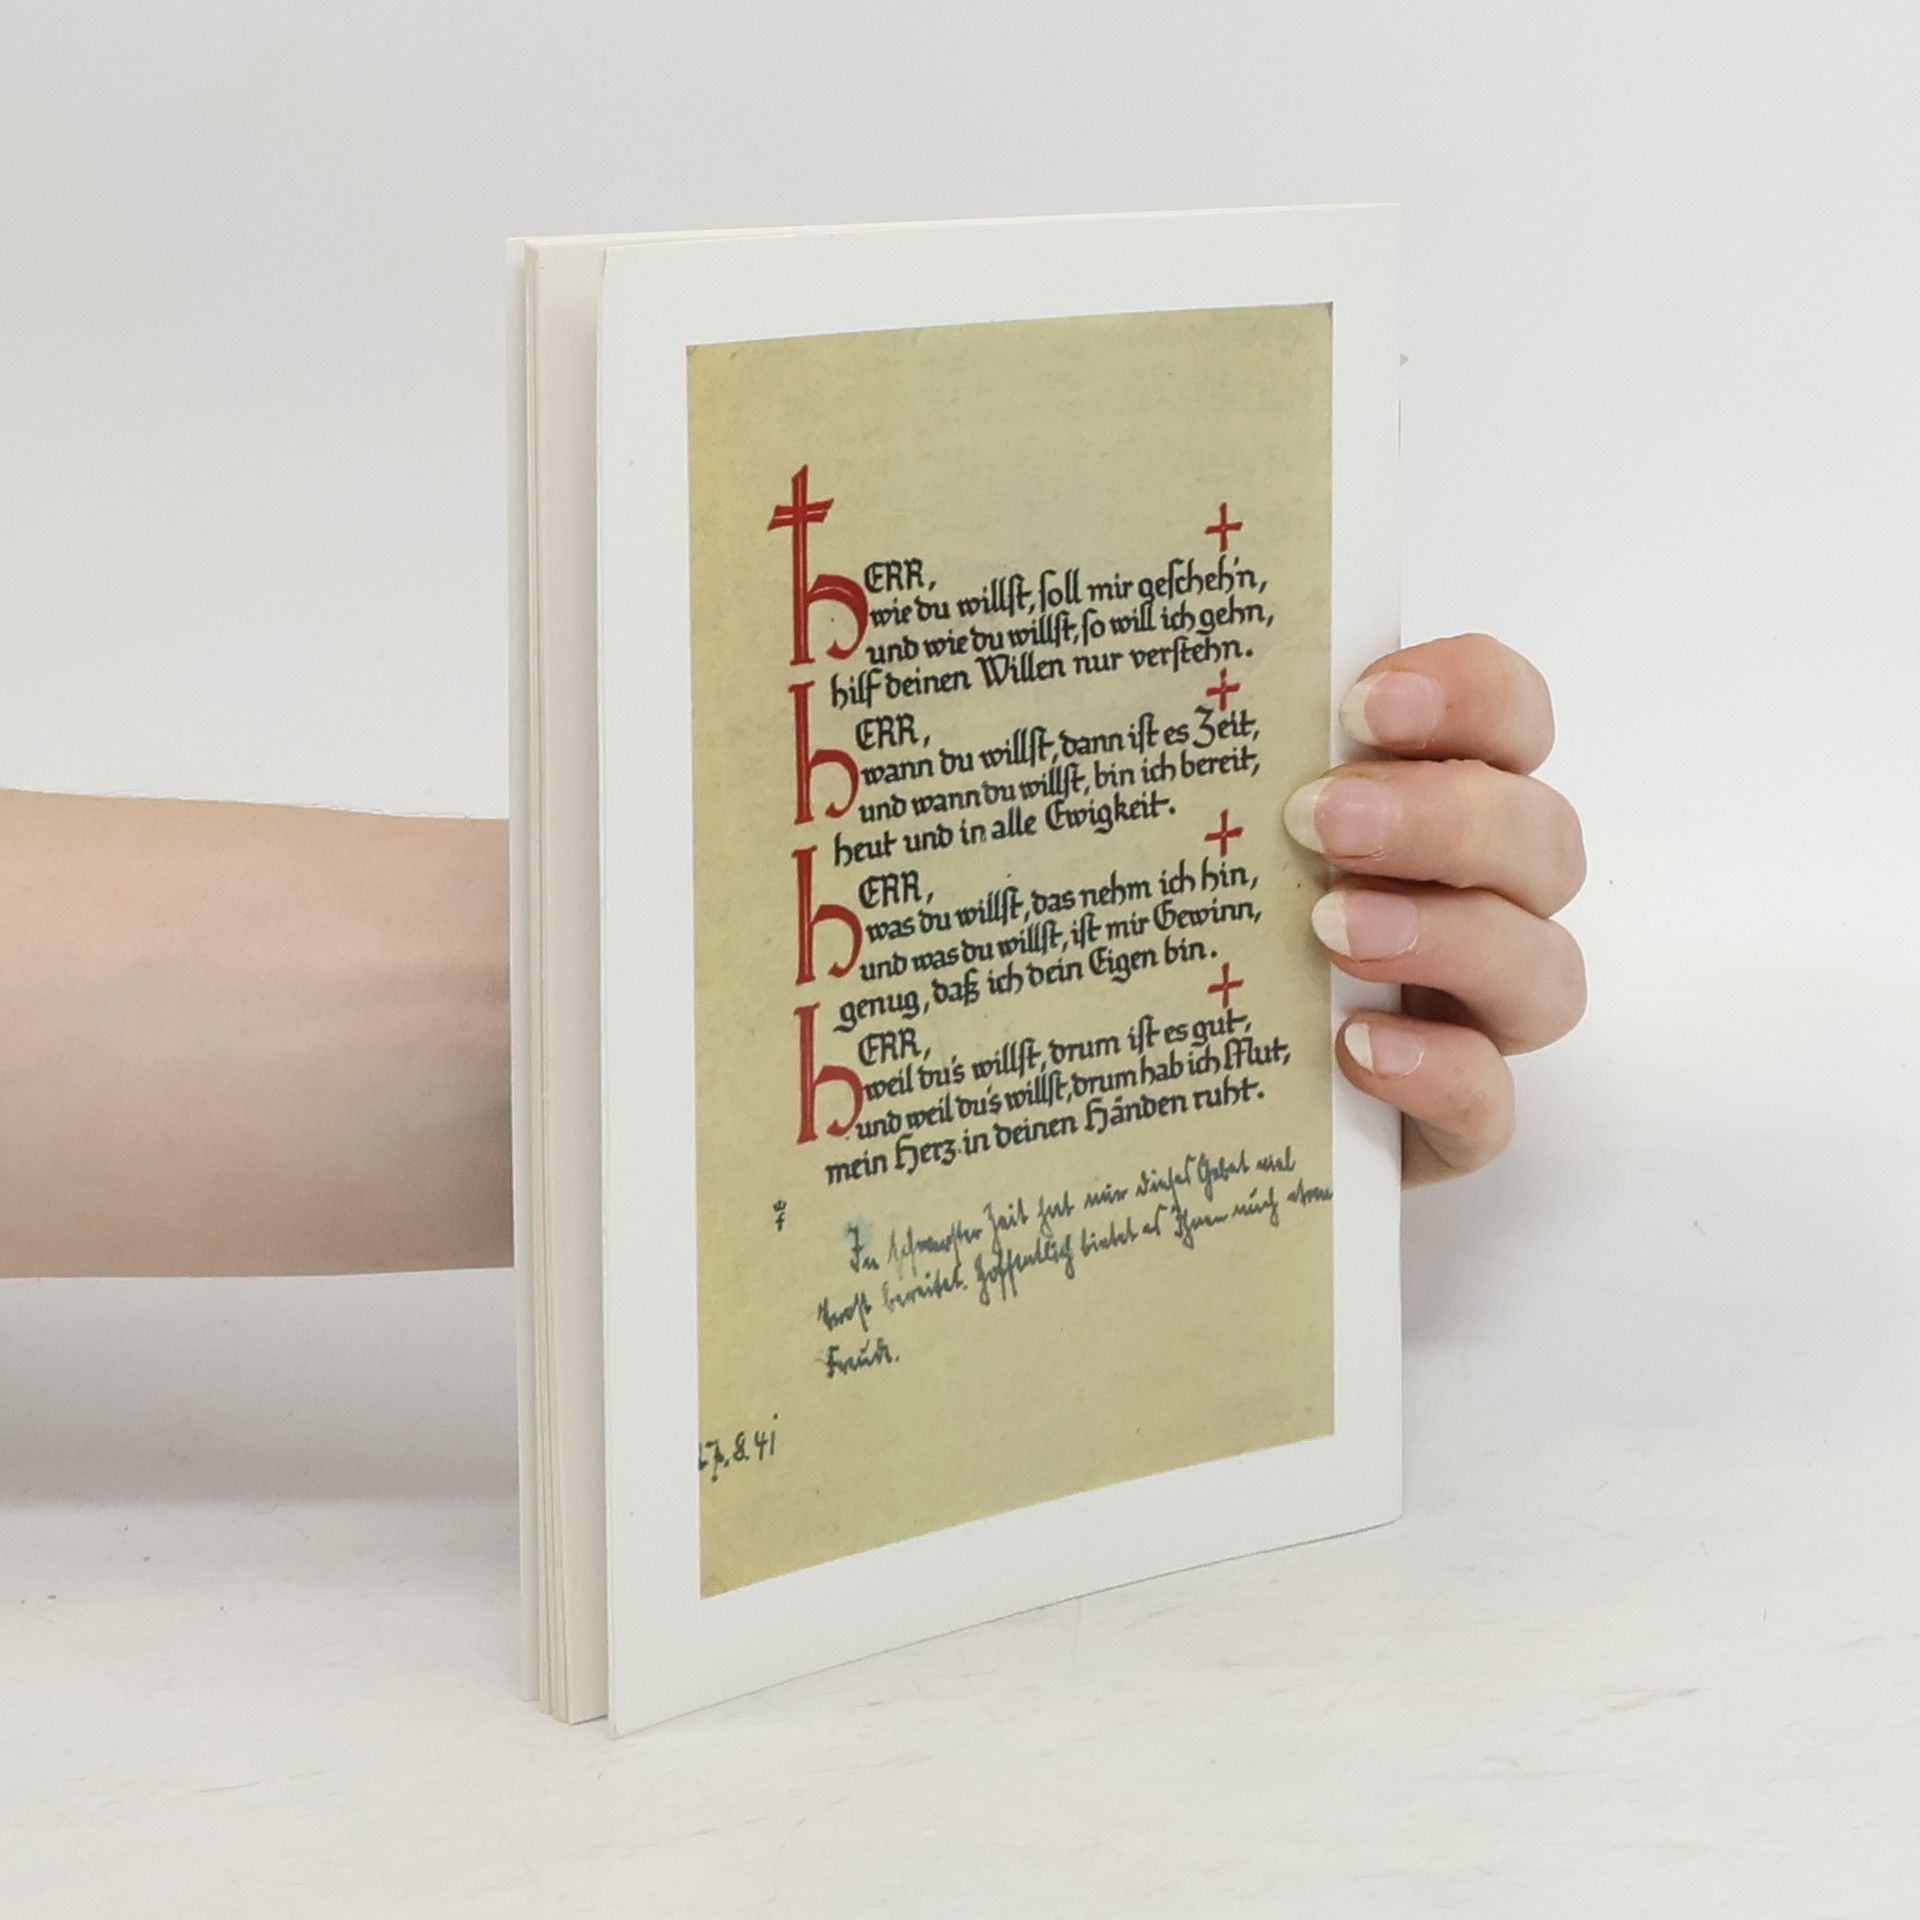 hERR,
wie du willſt, ſoll mir geſcheh'n,
und wie du willſt, ſo will ich gehn,
hilf deinen Willen nur verſtehn.
hERR,
wann du willſt, dann iſt es Zeit,
und wann du willſt, bin ich bereit,
heut und in alle Ewigkeit.
hERR,
was du willſt, das nehm ich hin,
und was du willſt, iſt mir Gewinn,
genug, daß ich dein Eigen bin.
hERR,
weil du's willſt, drum iſt es gut,
und weil du's willſt, drum hab ich Mut,
mein Herz in deinen Händen ruht.
In schwerster Zeit hat mir dieses Gebet viel
Trost bereitet. Hoffentlich bietet es Ihnen auch etwas
Freude.
.8.41